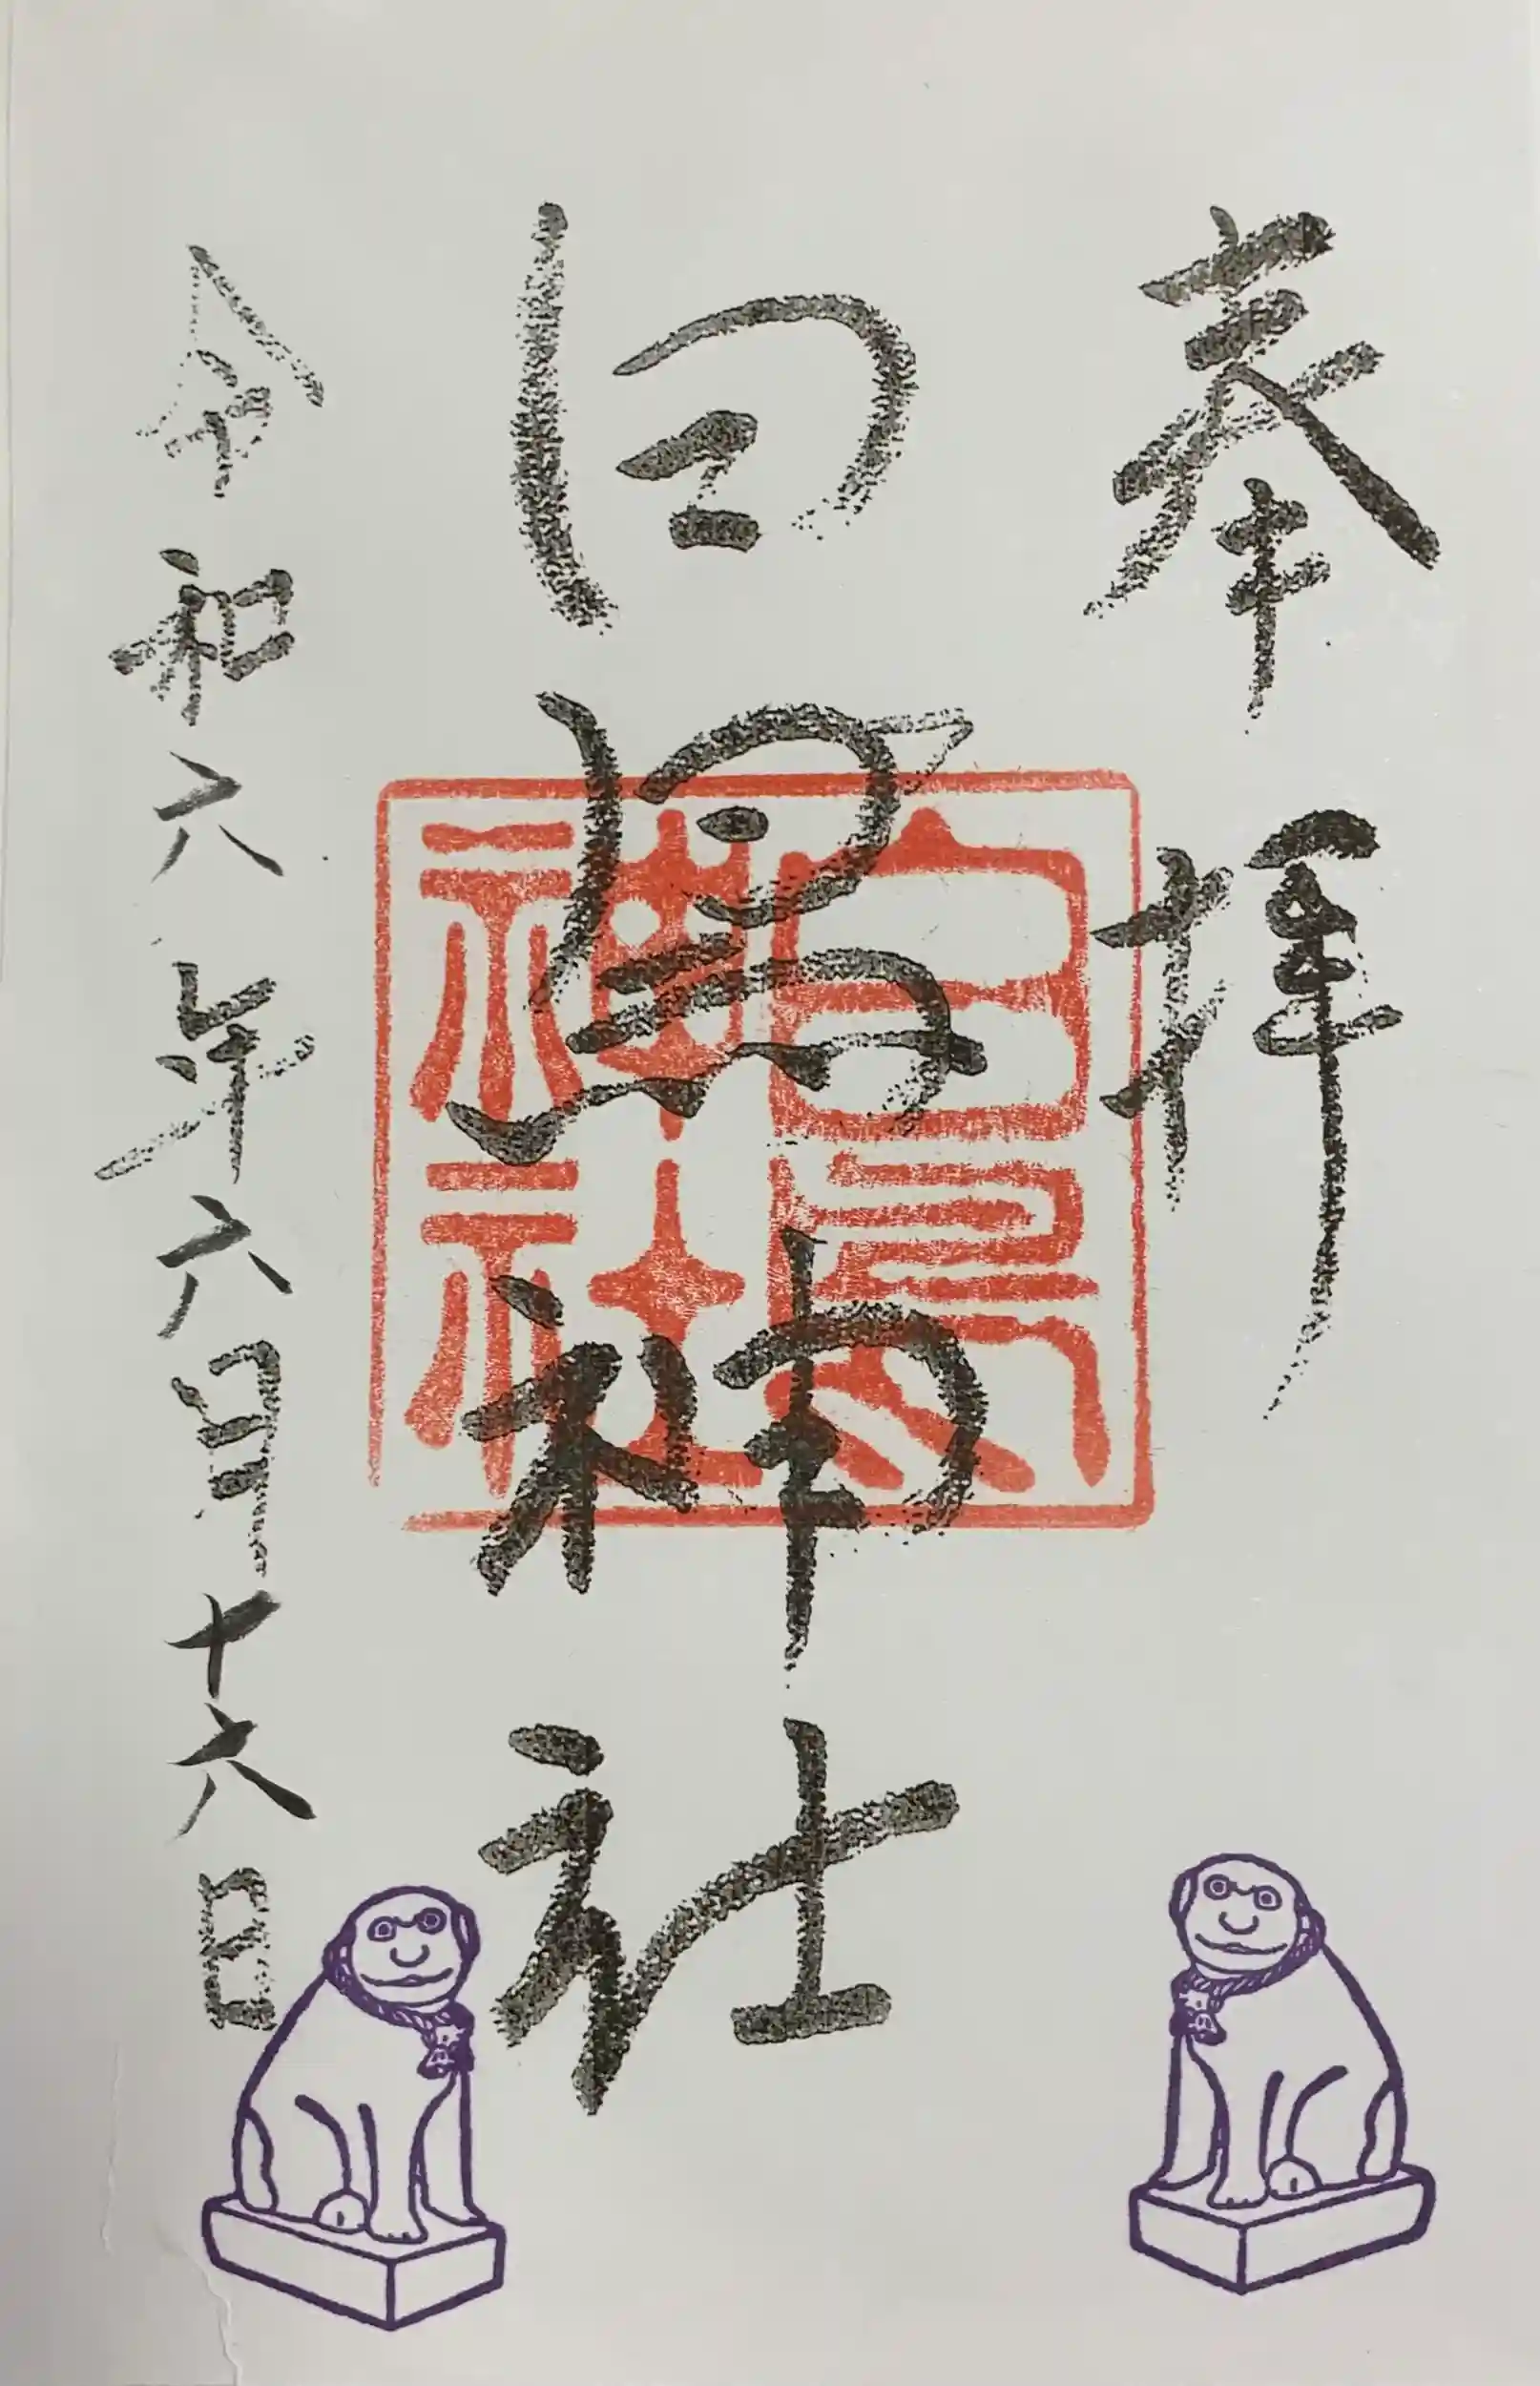 奉拝
白鳥神社
令和六年六月十六日
白鳥
神社